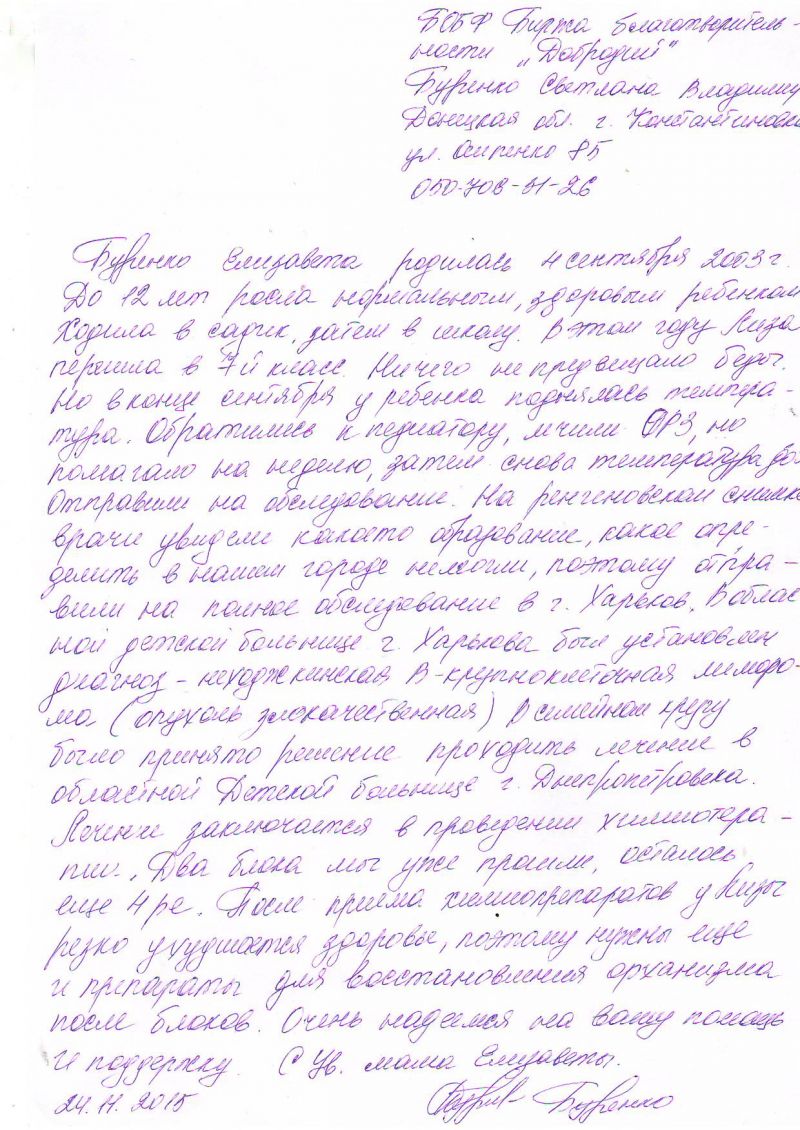 БОБФ Биржа благотворитель-
ности „Добродий"
Буренко Светлана Владимир
Донецкая обл. г. Константиновка
ул. Осипенко 85
050-708-51-26
Буренко Елизавета родилась 4 сентября 2003 г.
До 12 лет росла нормальным, здоровым ребенком
Ходила в садик, затем в школу. В этом году Лиза
перешла в 7й класс. Ничего не предвещало беды.
Но в конце сентября у ребенка поднялась темпера-
тура. Обратились к педиатору, лечили ОРЗ, но
помагало на неделю, затем снова температура
Отправили на обследование. На ренгеновском снимке
врачи увидели какоето образование, какое опре-
делить в нашем городе несмогли, поэтому отпра-
вили на полное обследование в г. Харьков. В облас
ной детской больнице г. Харькова был установлен
диагноз - неходжкинская В-крупноклеточная лимфо-
ма (опухоль злокачественная) В семейном кругу
было принято решение проходить лечение в
областной Детской больнице г. Днепропетровска.
Лечение заключается в проведении химиотера-
пии. Два блока мы уже прошли, осталось
еще 4ре. После приема химиопрепаратов у Лизы
резко ухудшается здоровье, поэтому нужны еще
и препараты для восстановления организма
после блоков. Очень надеемся на вашу помощь
и поддержку. С Ув. мама Елизаветы.
24.11.2015 Буренко